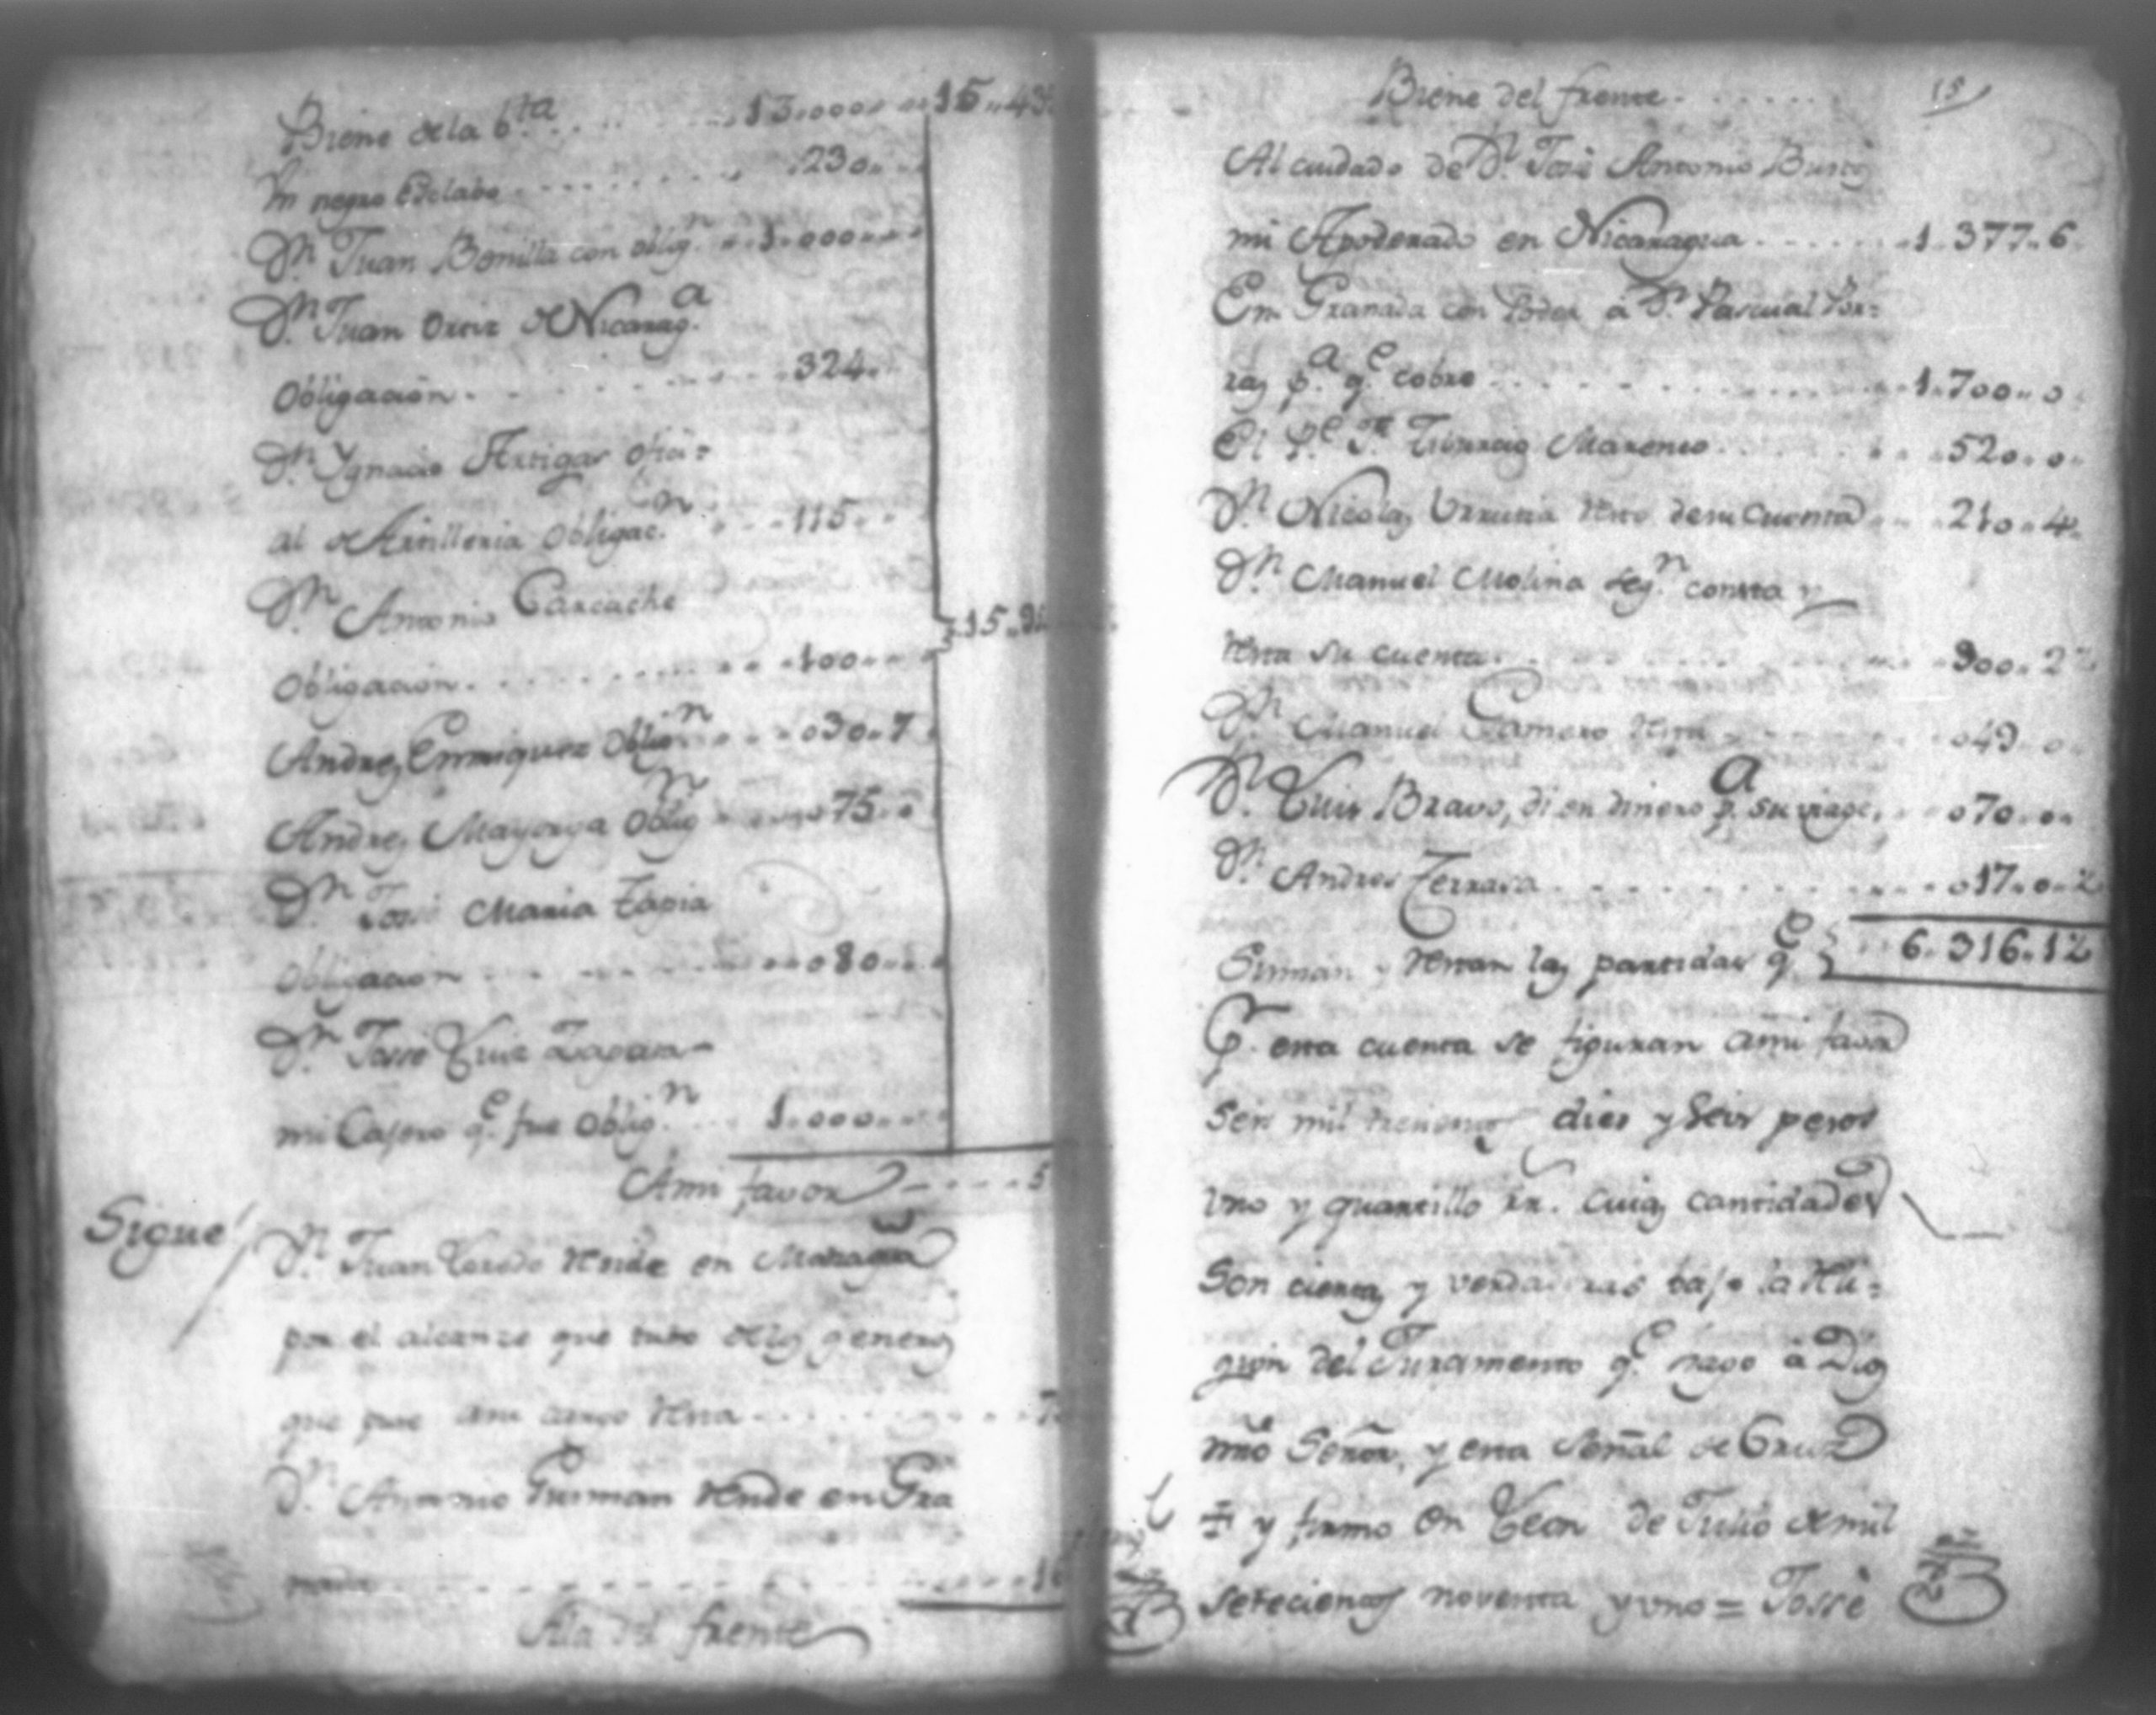 Biene de la b.ta . . . . . . 13.000 . . 15..43
Un negro Esclabo . . . . . . 230..
Dn. Juan Bonilla con oblig.n . . 1.000 . . .
Dn. Juan Ortiz de Nicarag.a
Obligacion . . . . . . 324..
Dn. Ygnacio Artigas ofici=
al de Artilleria Obligac.n . . 115..
Dn. Antonio Carcache
15.9
Obligacion . . . . . . 100 . . .
Andres Enrriquez Oblig.n . . . 030..7
Andres Mayorga Oblig.n . . . 075..
Dn. José Maria Tapia
Obligacion . . . . . . 080 . . .
Dn. Josse Cruz Zapata
mi Cajero q.e fue Oblig.n . . . 1.000 . . .
Ami favor . . . . 5
Sigue
Dn. Juan reside en Managua
por el alcanze que tubo de los generos
que puse ami cargo resta . . . . 7
Dn. Antonio Gusman reside en Gra
nada . . . . . . 1
Alla del frente
Biene del frente . . . . . . 15
Al cuidado de Dn. José Antonio
mi Apoderado en Nicaragua . . . . . 1.377..6
En Granada con Poder a Dn. Pascual Por=
ras p.a q.e cobre . . . . . . 1.700..0
El P.e Marenco . . . . . . 520..0
Dn. Nicolas Urrutia resto de su cuenta . . 210..4
Dn. Manuel Molina seg.n consta y
resta su cuenta . . . . . . 300..2
Dn. Manuel Gamero resta . . . . . . 049..0
Dn. Luis Bravo, di en dinero p.a su viage, . . 070..0
Dn. Andres Terrasa . . . . . . 017..0..
Suman y restan las partidas q.e 6.316.1
P.r esta cuenta se figuran ami favor
Seis mil trescientos dies y Seis pesos
uno y quartillo rr. cuias cantidades
Son ciertas y verdaderas bajo la Reli=
gion del Juramento q.e hago á Dios
ntro Señor, y esta Señal de Cruz
✝ y firmo en Leon de Julio de mil
setecientos noventa y uno = Josse